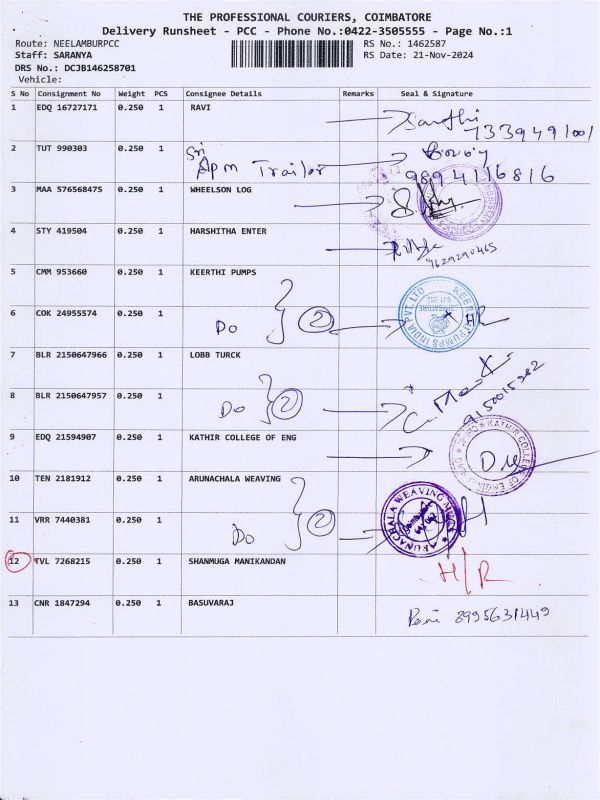 THE PROFESSIONAL COURIERS, COIMBATORE
Delivery Runsheet - PCC - Phone No.:0422-3505555 - Page No.:1
Route: NEELAMBURPCC
RS No.: 1462587
Staff: SARANYA
RS Date: 21-Nov-2024
DRS No.: DCJB146258701
Vehicle:
S No Consignment No Weight PCS Consignee Details Remarks Seal & Signature
1 EDQ 16727171 0.250 1 RAVI
7339491001
2 TUT 990303 0.250 1 Sri
Apm Trailor 9894116816
3 MAA 576568475 0.250 1 WHEELSON LOG
4 STY 419504 0.250 1 HARSHITHA ENTER
9629290465
5 CMM 953660 0.250 1 KEERTHI PUMPS
6 COK 24955574 0.250 1 Do 2
7 BLR 2150647966 0.250 1 LOBB TURCK
8 BLR 2150647957 0.250 1 Do 2
9150015282
9 EDQ 21594907 0.250 1 KATHIR COLLEGE OF ENG
10 TEN 2181912 0.250 1 ARUNACHALA WEAVING
ARUNACHALA WEAVING MILLS
11 VRR 7440381 0.250 1 Do 2
12 TVL 7268215 0.250 1 SHANMUGA MANIKANDAN H/R
13 CNR 1847294 0.250 1 BASUVARAJ 8995631449